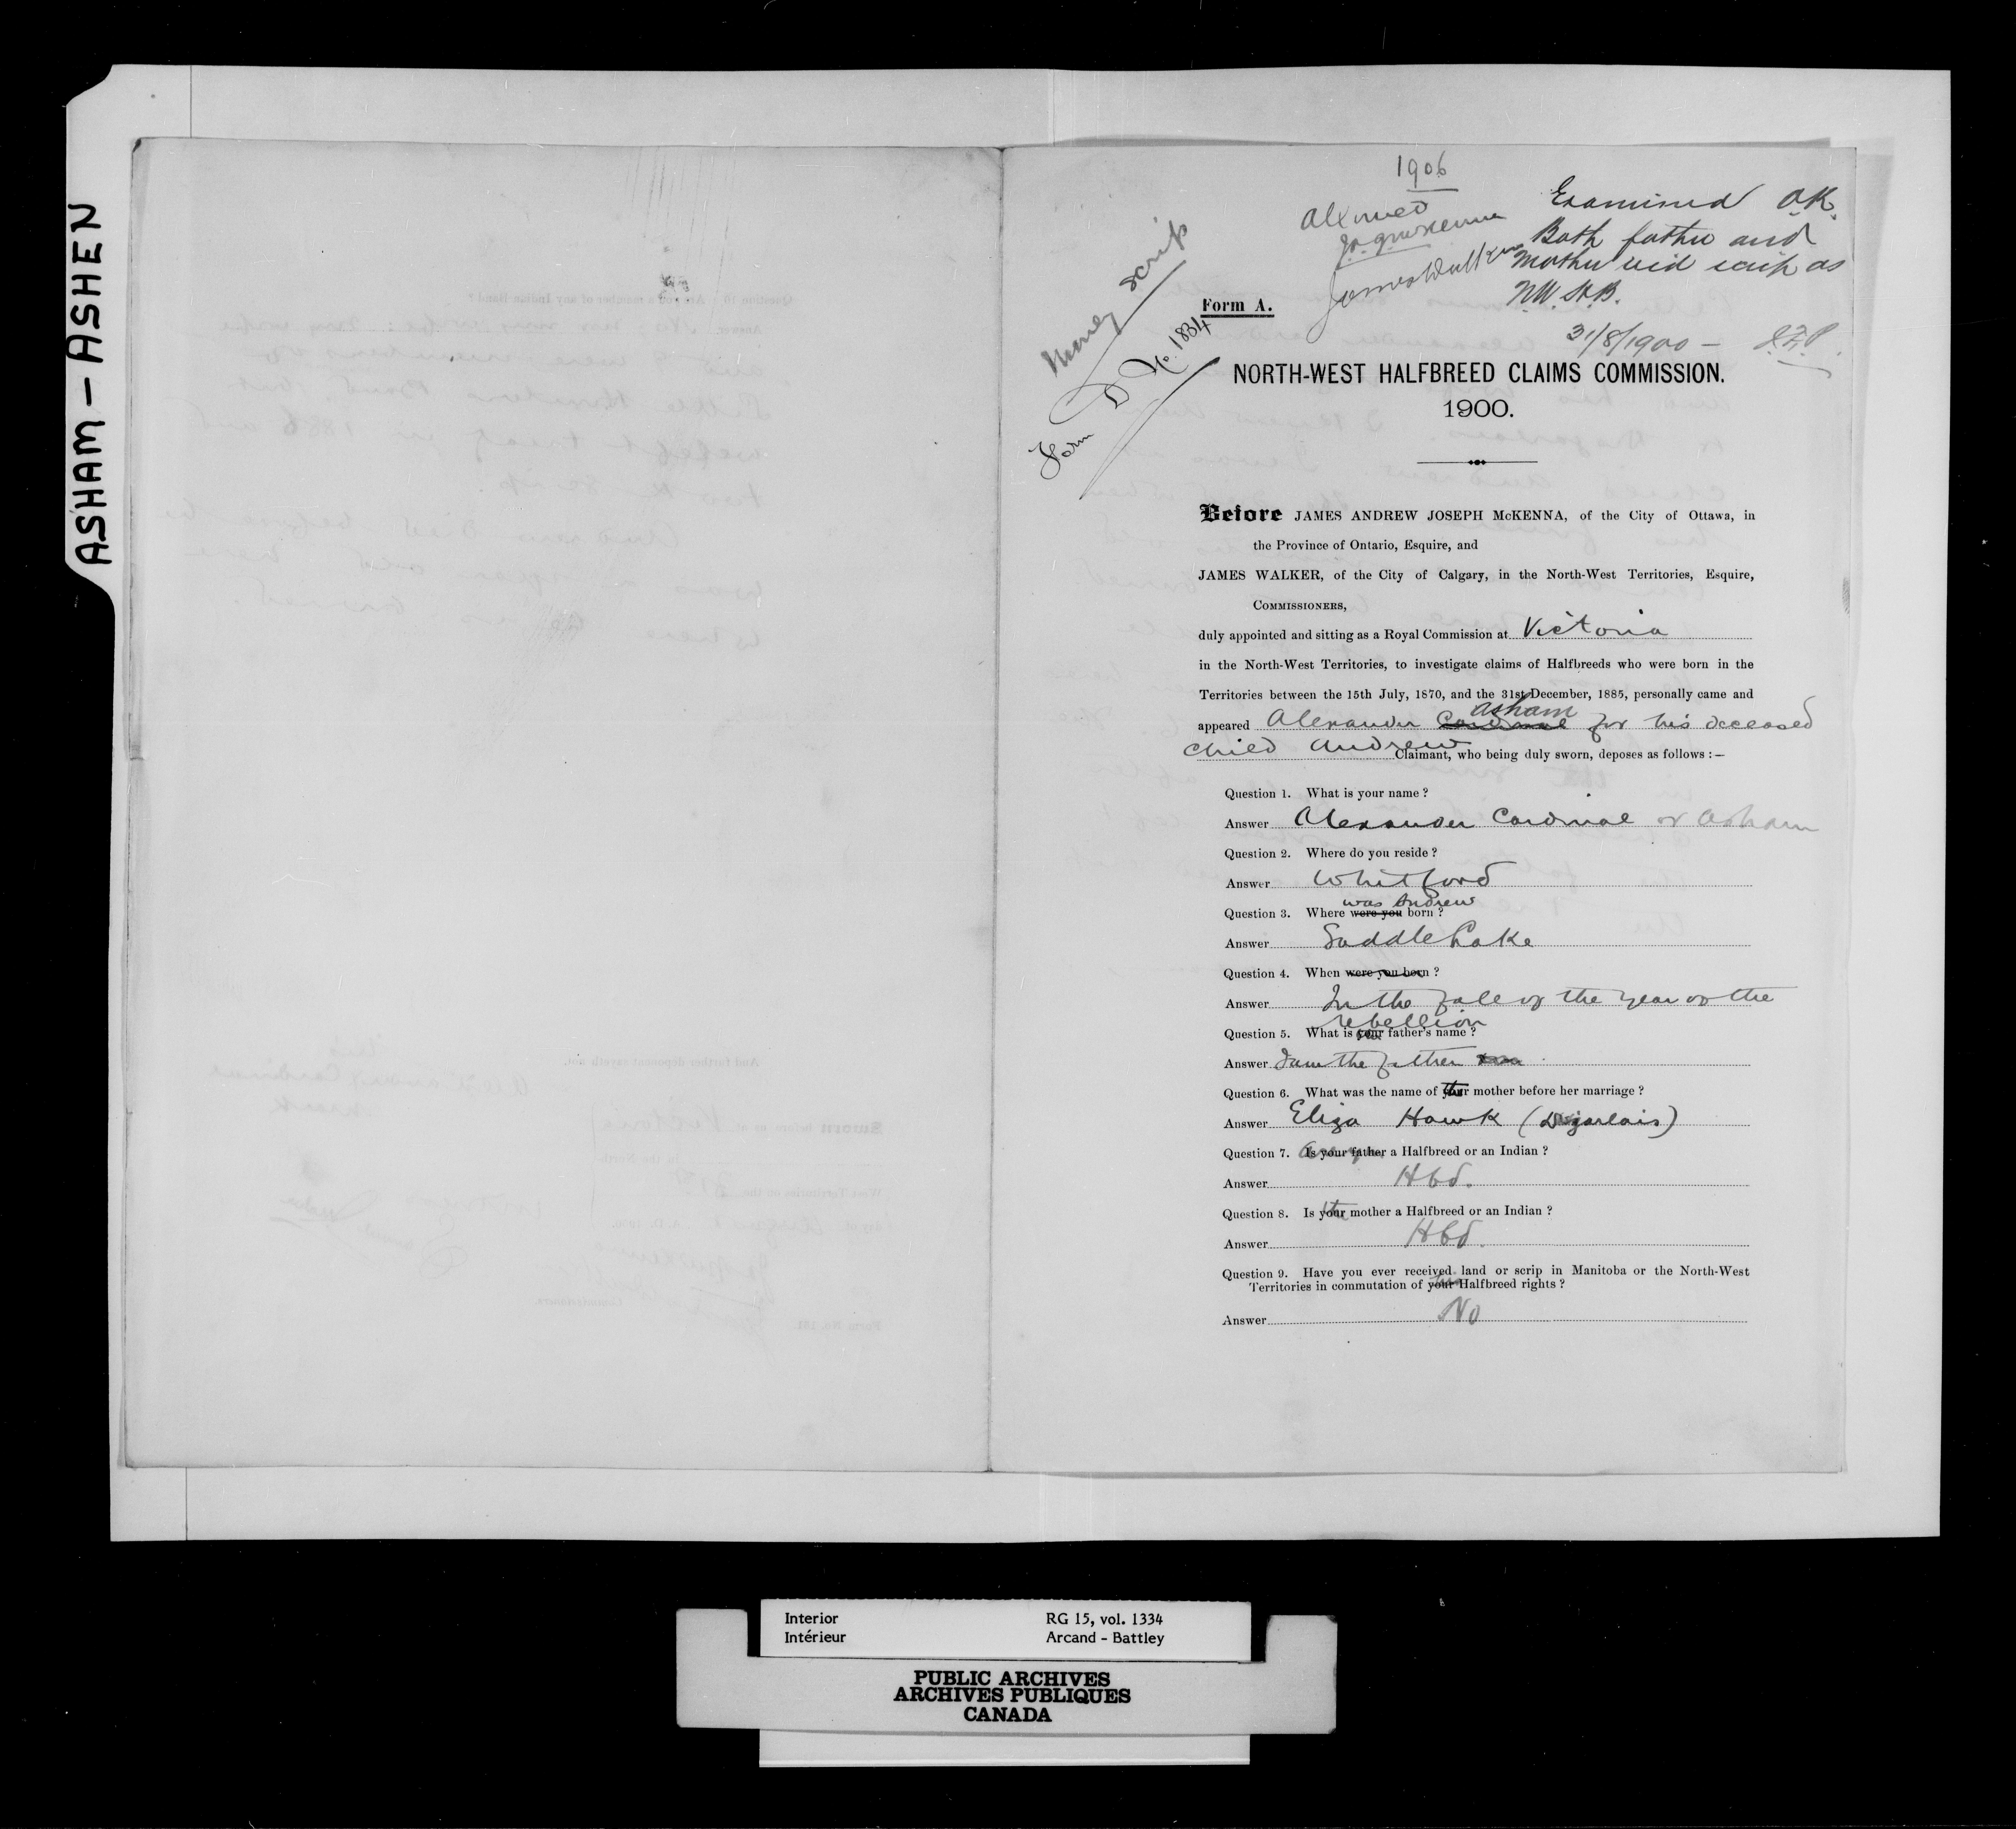 ASHAM — ASHEN
1906
Allowed
J.A.J. McKenna
James Walker
Examined O.K.
Both father and
Mother rec'd scrip as
N.W. H.B.
31/8/1900 —
Money scrip
Form D No. 1834
Form A.
NORTH-WEST HALFBREED CLAIMS COMMISSION.
1900.
Before JAMES ANDREW JOSEPH McKENNA, of the City of Ottawa, in
the Province of Ontario, Esquire, and
JAMES WALKER, of the City of Calgary, in the North-West Territories, Esquire,
COMMISSIONERS,
duly appointed and sitting as a Royal Commission at Victoria
in the North-West Territories, to investigate claims of Halfbreeds who were born in the
Territories between the 15th July, 1870, and the 31st December, 1885, personally came and
Asham
appeared Alexander Cardinal for his deceased
child Andrew Claimant, who being duly sworn, deposes as follows :—
Question 1. What is your name ?
Answer Alexander Cardinal or Asham
Question 2. Where do you reside ?
Answer Whitford
was Andrew
Question 3. Where were you born ?
Answer Saddle Lake
Question 4. When were you born ?
Answer In the fall of the year of the
rebellion
Question 5. What is your father's name ?
Answer I am the father
Question 6. What was the name of your mother before her marriage ?
Answer Eliza Hawk (Dejarlais)
Question 7. Is your father a Halfbreed or an Indian ?
Answer Hbd.
Question 8. Is your mother a Halfbreed or an Indian ?
Answer Hbd.
Question 9. Have you ever received land or scrip in Manitoba or the North-West
Territories in commutation of your Halfbreed rights ?
Answer No
Interior RG 15, vol. 1334
Intérieur Arcand - Battley
PUBLIC ARCHIVES
ARCHIVES PUBLIQUES
CANADA